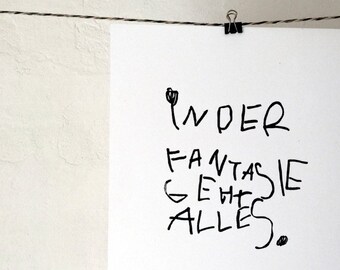 IN DER
FANTASIE
GEHT
ALLES.